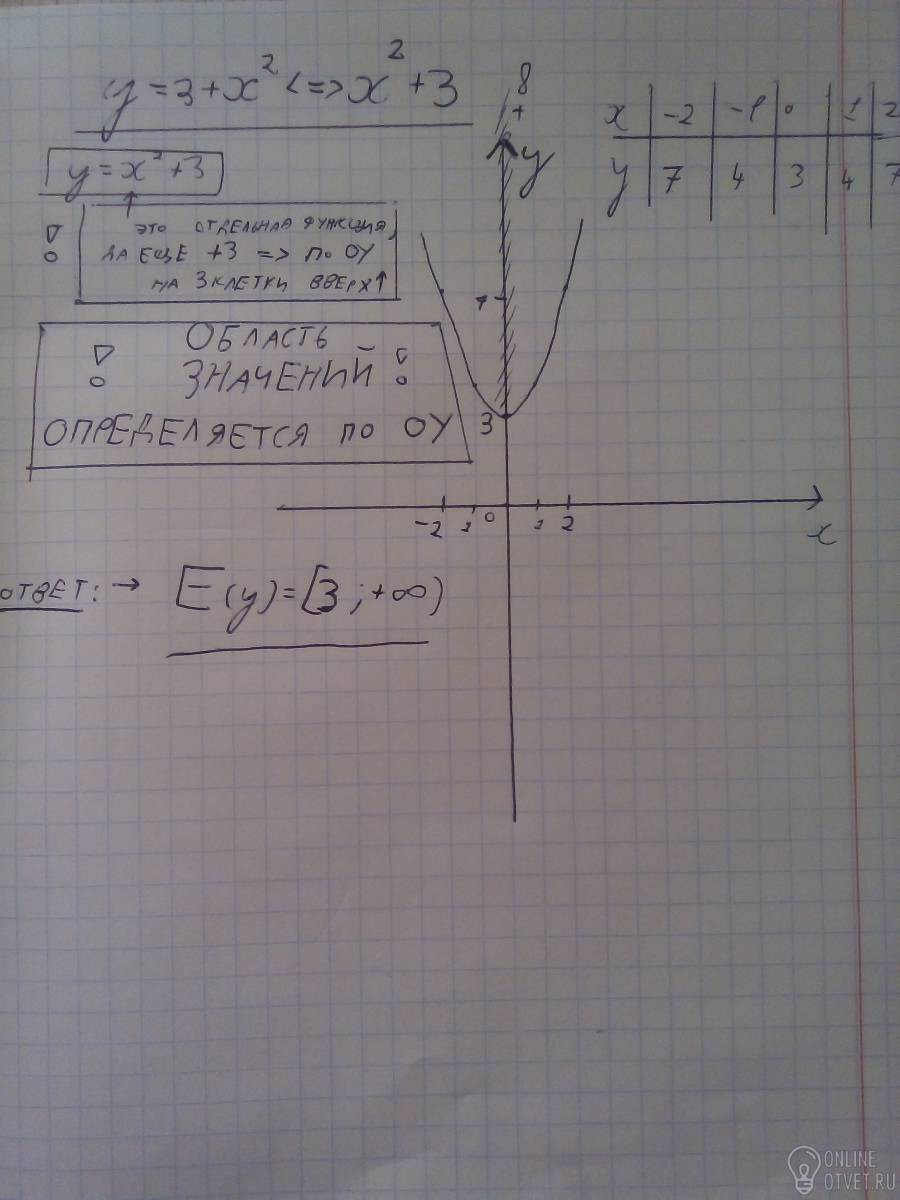 y = 3 + x² <=> x² + 3
y = x² + 3
это отдельная функция,
да еще +3 => по OY
на 3 клетки вверх ↑
! ОБЛАСТЬ
ЗНАЧЕНИЙ !
ОПРЕДЕЛЯЕТСЯ ПО OY
x | -2 | -1 | 0 | 1 | 2
y | 7 | 4 | 3 | 4 | 7
+∞
y
7
3
-2 1 0 1 2
x
ОТВЕТ: → E(y) = [3; +∞)
ONLINE
OTVET.RU